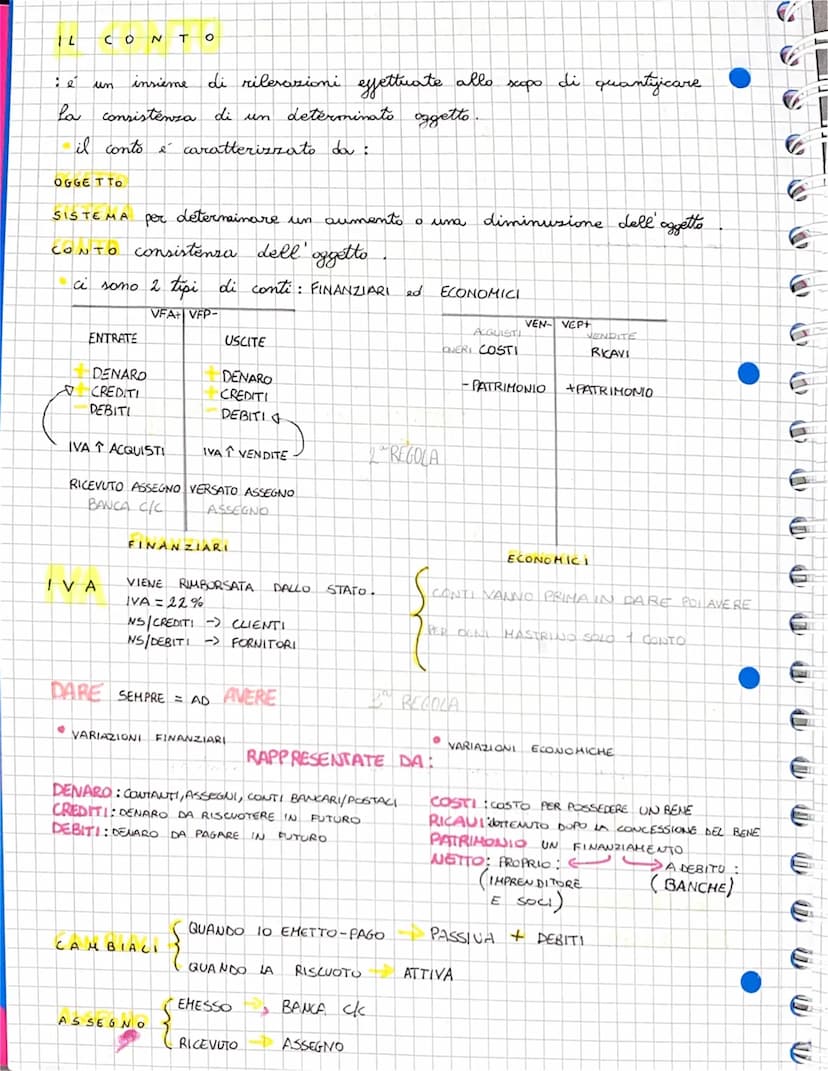 IL CONTO
: é un insieme di rilevazioni effettuate allo scopo di quantificare
la consistenza di un determinato oggetto.
• il conto é caratterizzato da :
OGGETTO
SISTEMA per determinare un aumento o una diminuzione dell'oggetto.
CONTO consistenza dell'oggetto.
• ci sono 2 tipi di conti : FINANZIARI ed ECONOMICI
VFA+ VFP-
ENTRATE USCITE
+ DENARO + DENARO
+ CREDITI + CREDITI
- DEBITI - DEBITI
IVA ↑ ACQUISTI IVA ↑ VENDITE
RICEVUTO ASSEGNO VERSATO ASSEGNO
BANCA C/C ASSEGNO
FINANZIARI
VEN- VEP+
ACQUISTI VENDITE
ONERI COSTI RICAVI
- PATRIMONIO + PATRIMONIO
2^ REGOLA
ECONOMICI
IVA VIENE RIMBURSATA DALLO STATO.
IVA = 22%
NS/CREDITI -> CLIENTI
NS/DEBITI -> FORNITORI
CONTI VANNO PRIMA IN DARE POI AVERE
PER OGNI MASTRINO SOLO 1 CONTO
DARE SEMPRE = AD AVERE
REGOLA
• VARIAZIONI FINANZIARI
• VARIAZIONI ECONOMICHE
RAPPRESENTATE DA:
DENARO : CONTANTI, ASSEGNI, CONTI BANCARI/POSTALI
CREDITI : DENARO DA RISCUOTERE IN FUTURO
DEBITI : DENARO DA PAGARE IN FUTURO
COSTI : COSTO PER POSSEDERE UN BENE
RICAVI : OTTENUTO DOPO LA CONCESSIONE DEL BENE
PATRIMONIO UN FINANZIAMENTO
NETTO : PROPRIO : ← → A DEBITO :
(IMPRENDITORE (BANCHE)
E SOCI)
CAMBIALI
QUANDO IO EMETTO-PAGO → PASSIVA + DEBITI
QUANDO LA RISCUOTO → ATTIVA
ASSEGNO
EMESSO → BANCA C/C
RICEVUTO → ASSEGNO